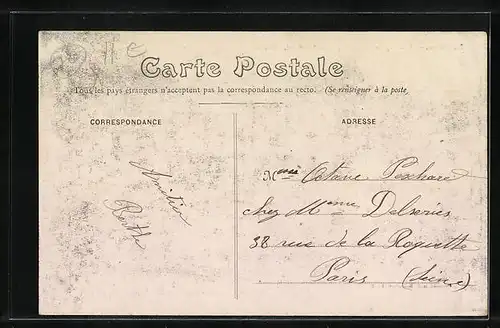 11 €
Carte Postale
Tous les pays étrangers n'acceptent pas la correspondance au recto. (Se renseigner à la poste)
CORRESPONDANCE
ADRESSE
Amitiés
Berthe
Mme Octave
chez Mme
38 rue de la Roquette
Paris (Seine)